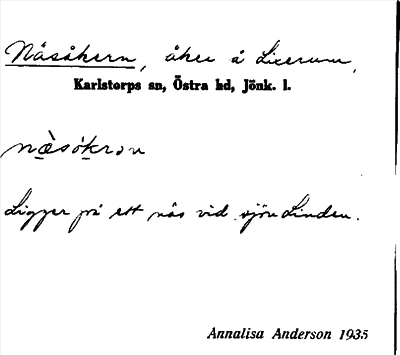 Näsåkern, åker å Lixerum,
Karlstorps sn, Östra hd, Jönk. l.
næ̀sókrɔn
Ligger på ett näs vid sjön Linden.
Annalisa Anderson 1935